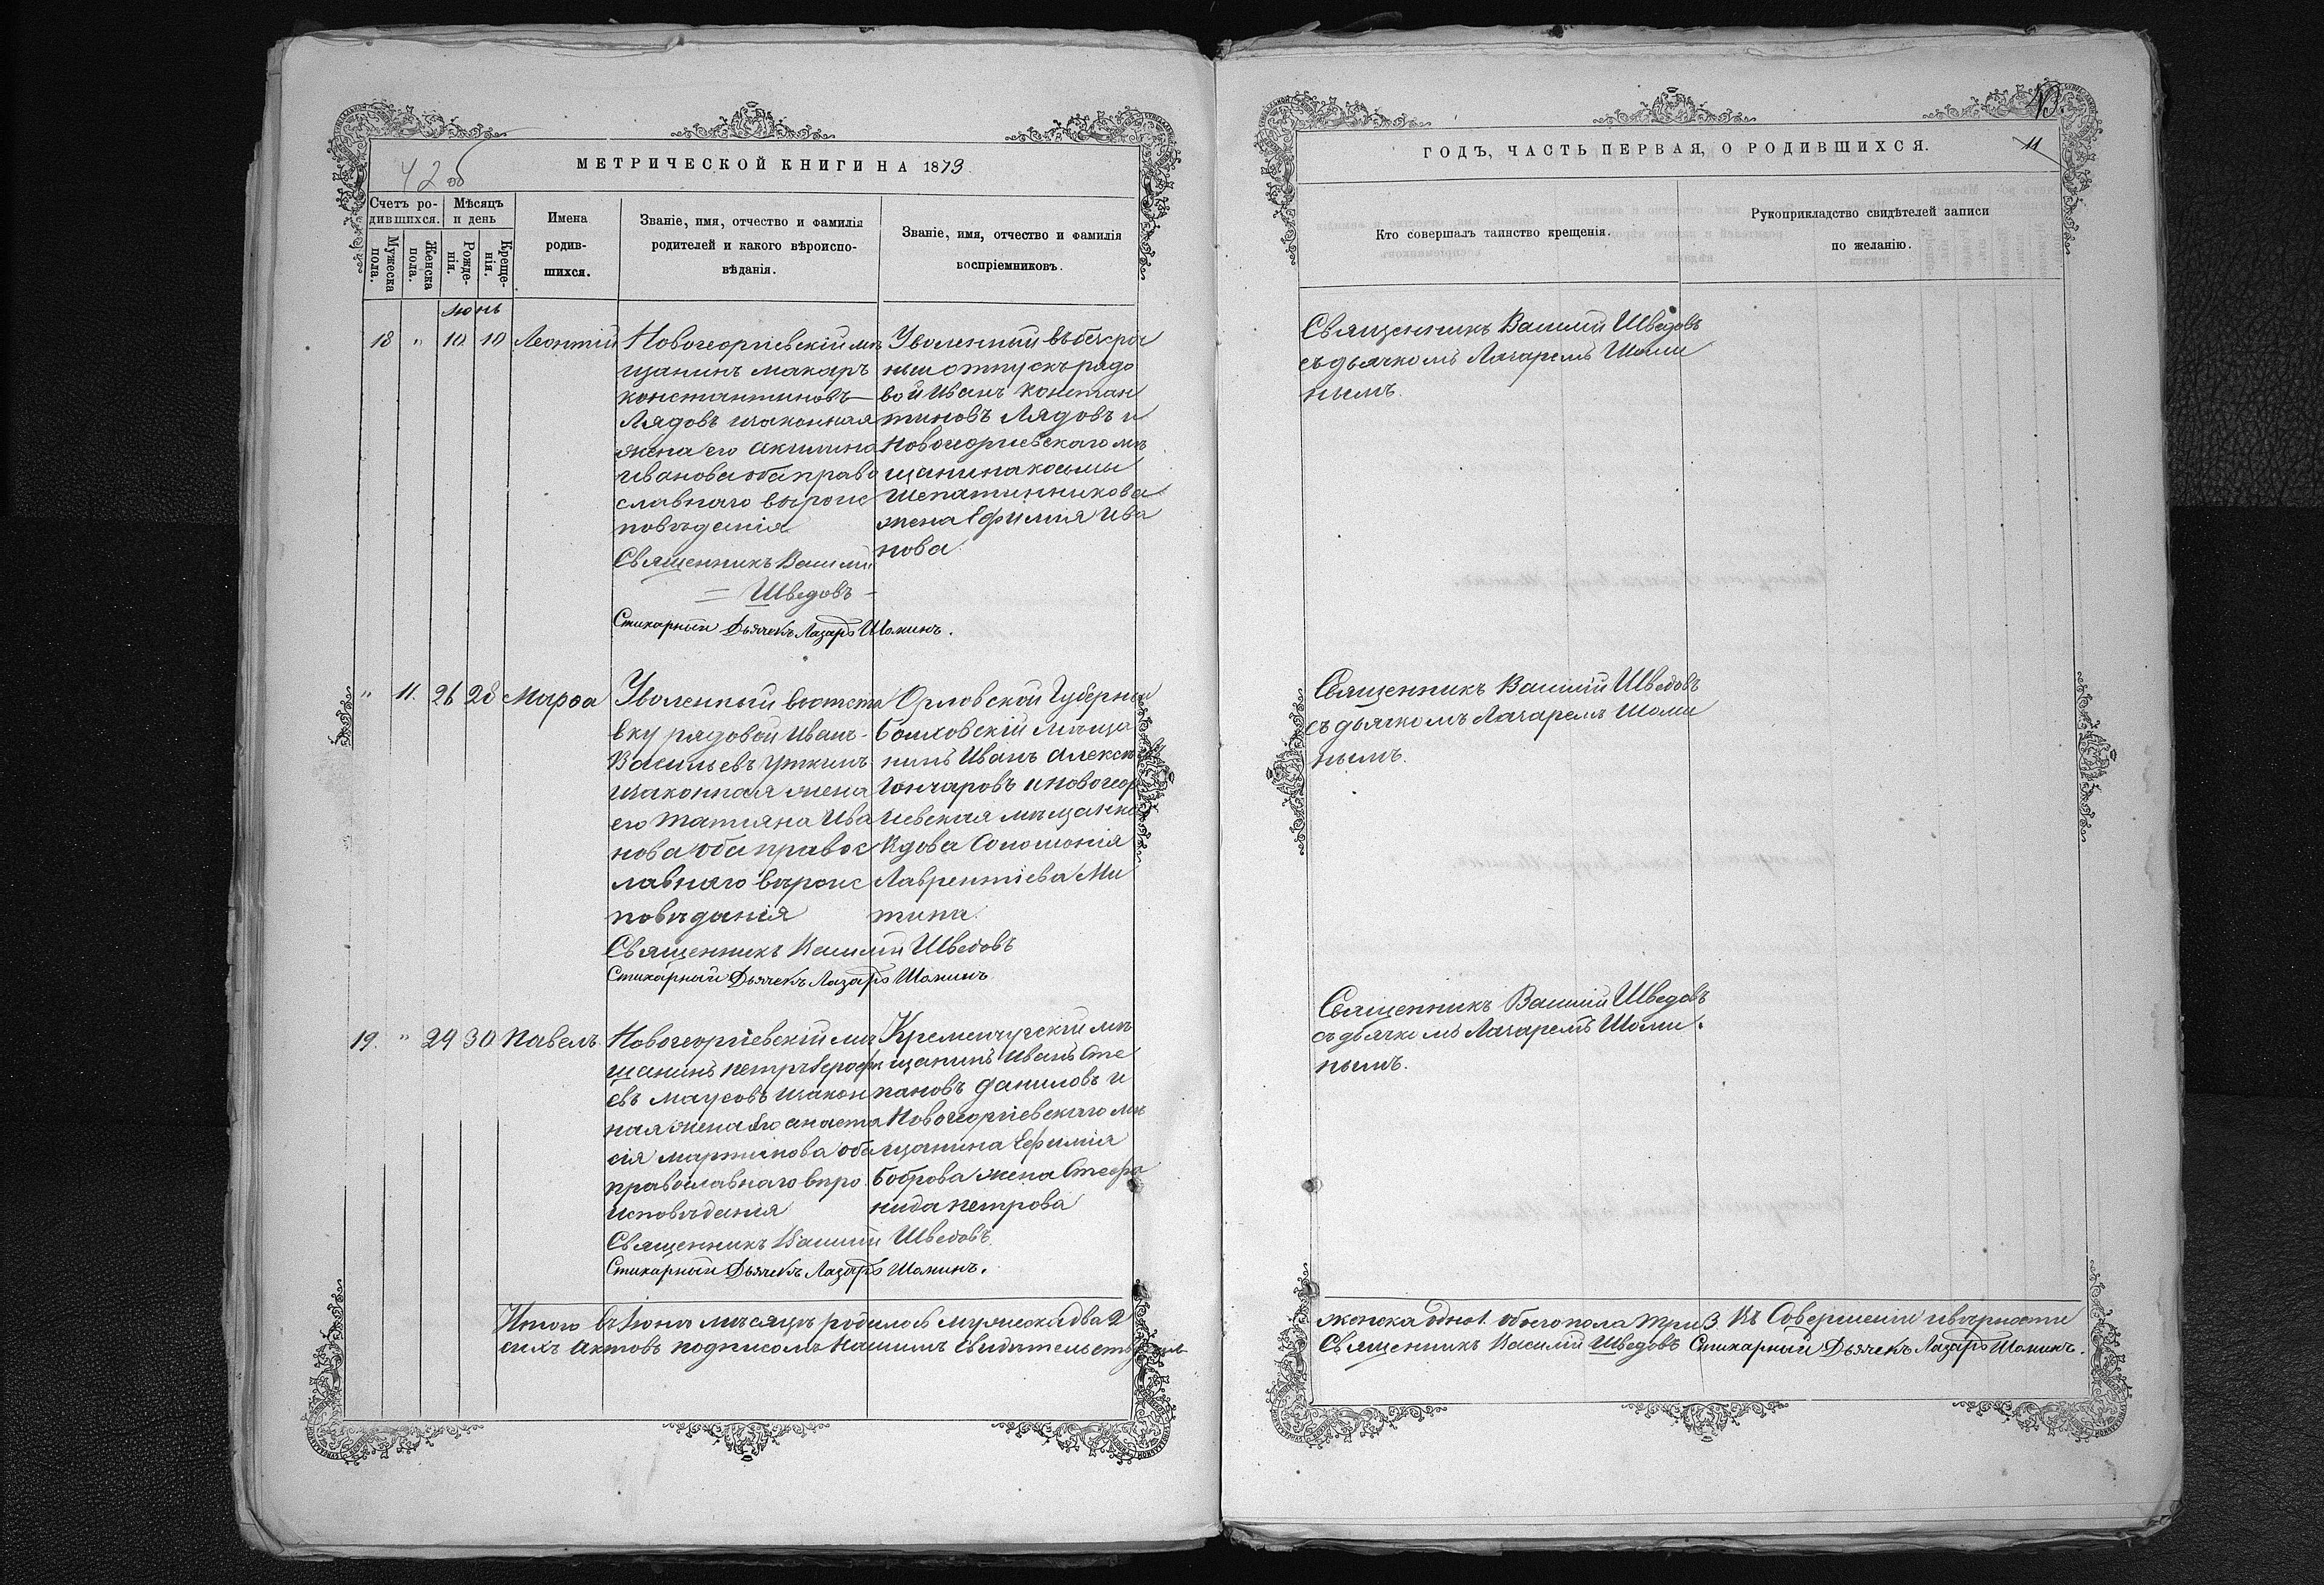 42 об
МЕТРИЧЕСКОЙ КНИГИ НА 1873.
Счетъ родившихся.
Мѣсяцъ и день
Мужеска пола.
Женска пола.
Рожденія.
Крещенія.
Имена родившихся.
Званіе, имя, отчество и фамилія
родителей и какого вѣроиспо-
вѣданія.
Званіе, имя, отчество и фамилія
воспріемниковъ.
Июнь
18 " 10 10 Леонтій
Новогеоргіевскій мѣ
щанинъ Макаръ
Константиновъ
Лядовъ изаконная
жена его Акилина
Иванова оба право
славнаго вѣроис
повѣденія
Священникъ Василій
= Шведовъ -
Стихарный Дьячекъ Лазарь Шоминъ.
Уволенный въ безсро
ный отпускъ рядо
вой Иванъ Констан
тиновъ Лядовъ и
Новогеоргіевскаго мѣ
щанина Косьмы
Шепатинникова
жена Ефимія Ива
нова
" 11. 26 28 Марѳа
Уволенный вотста
вку рядовой Иванъ
Васильевъ Уткинъ
изаконная жена
его Татіяна Ива
нова оба правос
лавнаго вѣроис
повѣданія
Священникъ Василій Шведовъ
Стихарный Дьячекъ Лазарь Шоминъ
Орловской Губерніи
Болховскій Мѣща
нинъ Иванъ Алексѣ
Гончаровъ и Новогеор
гіевская мѣщанка
Вдова Соломонія
Лаврентіева Ми
тина.
19. " 29 30 Павелъ
Новогеоргіевскій мѣ
щанинъ Петръ Ерофѣ
евъ Маусовъ изакон
ная жена его Анаста
сія Мартинова оба
православнаго вѣро
исповѣданія
Священникъ Василій Шведовъ.
Стихарный Дьячекъ Лазарь Шоминъ.
Кременчугскій мѣ
щанинъ Иванъ Сте
пановъ Даниловъ и
Новогеоргіевскаго мѣ
щанина Ефимія
Боброва жена Стефа
нида Петрова
Итого въ Іюнѣ мѣсяцѣ родилось мужеска два 2
сихъ Актовъ подписомъ Нашимъ Свидетельствуемъ
ГОДЪ, ЧАСТЬ ПЕРВАЯ, О РОДИВШИХСЯ.
11
Кто совершалъ таинство крещенія.
Рукоприкладство свидѣтелей записи
по желанію.
Священникъ Василій Шведовъ
съ дьячкомъ Лазаремъ Шоми
нымъ.
Священникъ Василій Шведовъ
съ дьячкомъ Лазаремъ Шоми
нымъ.
Священникъ Василій Шведовъ
съ дьячкомъ Лазаремъ Шоми
нымъ.
женска одно 1. обоего пола три 3 Въ Совершеніи ивѣрности
Священникъ Василій Шведовъ Стихарный Дьячекъ Лазарь Шоминъ.